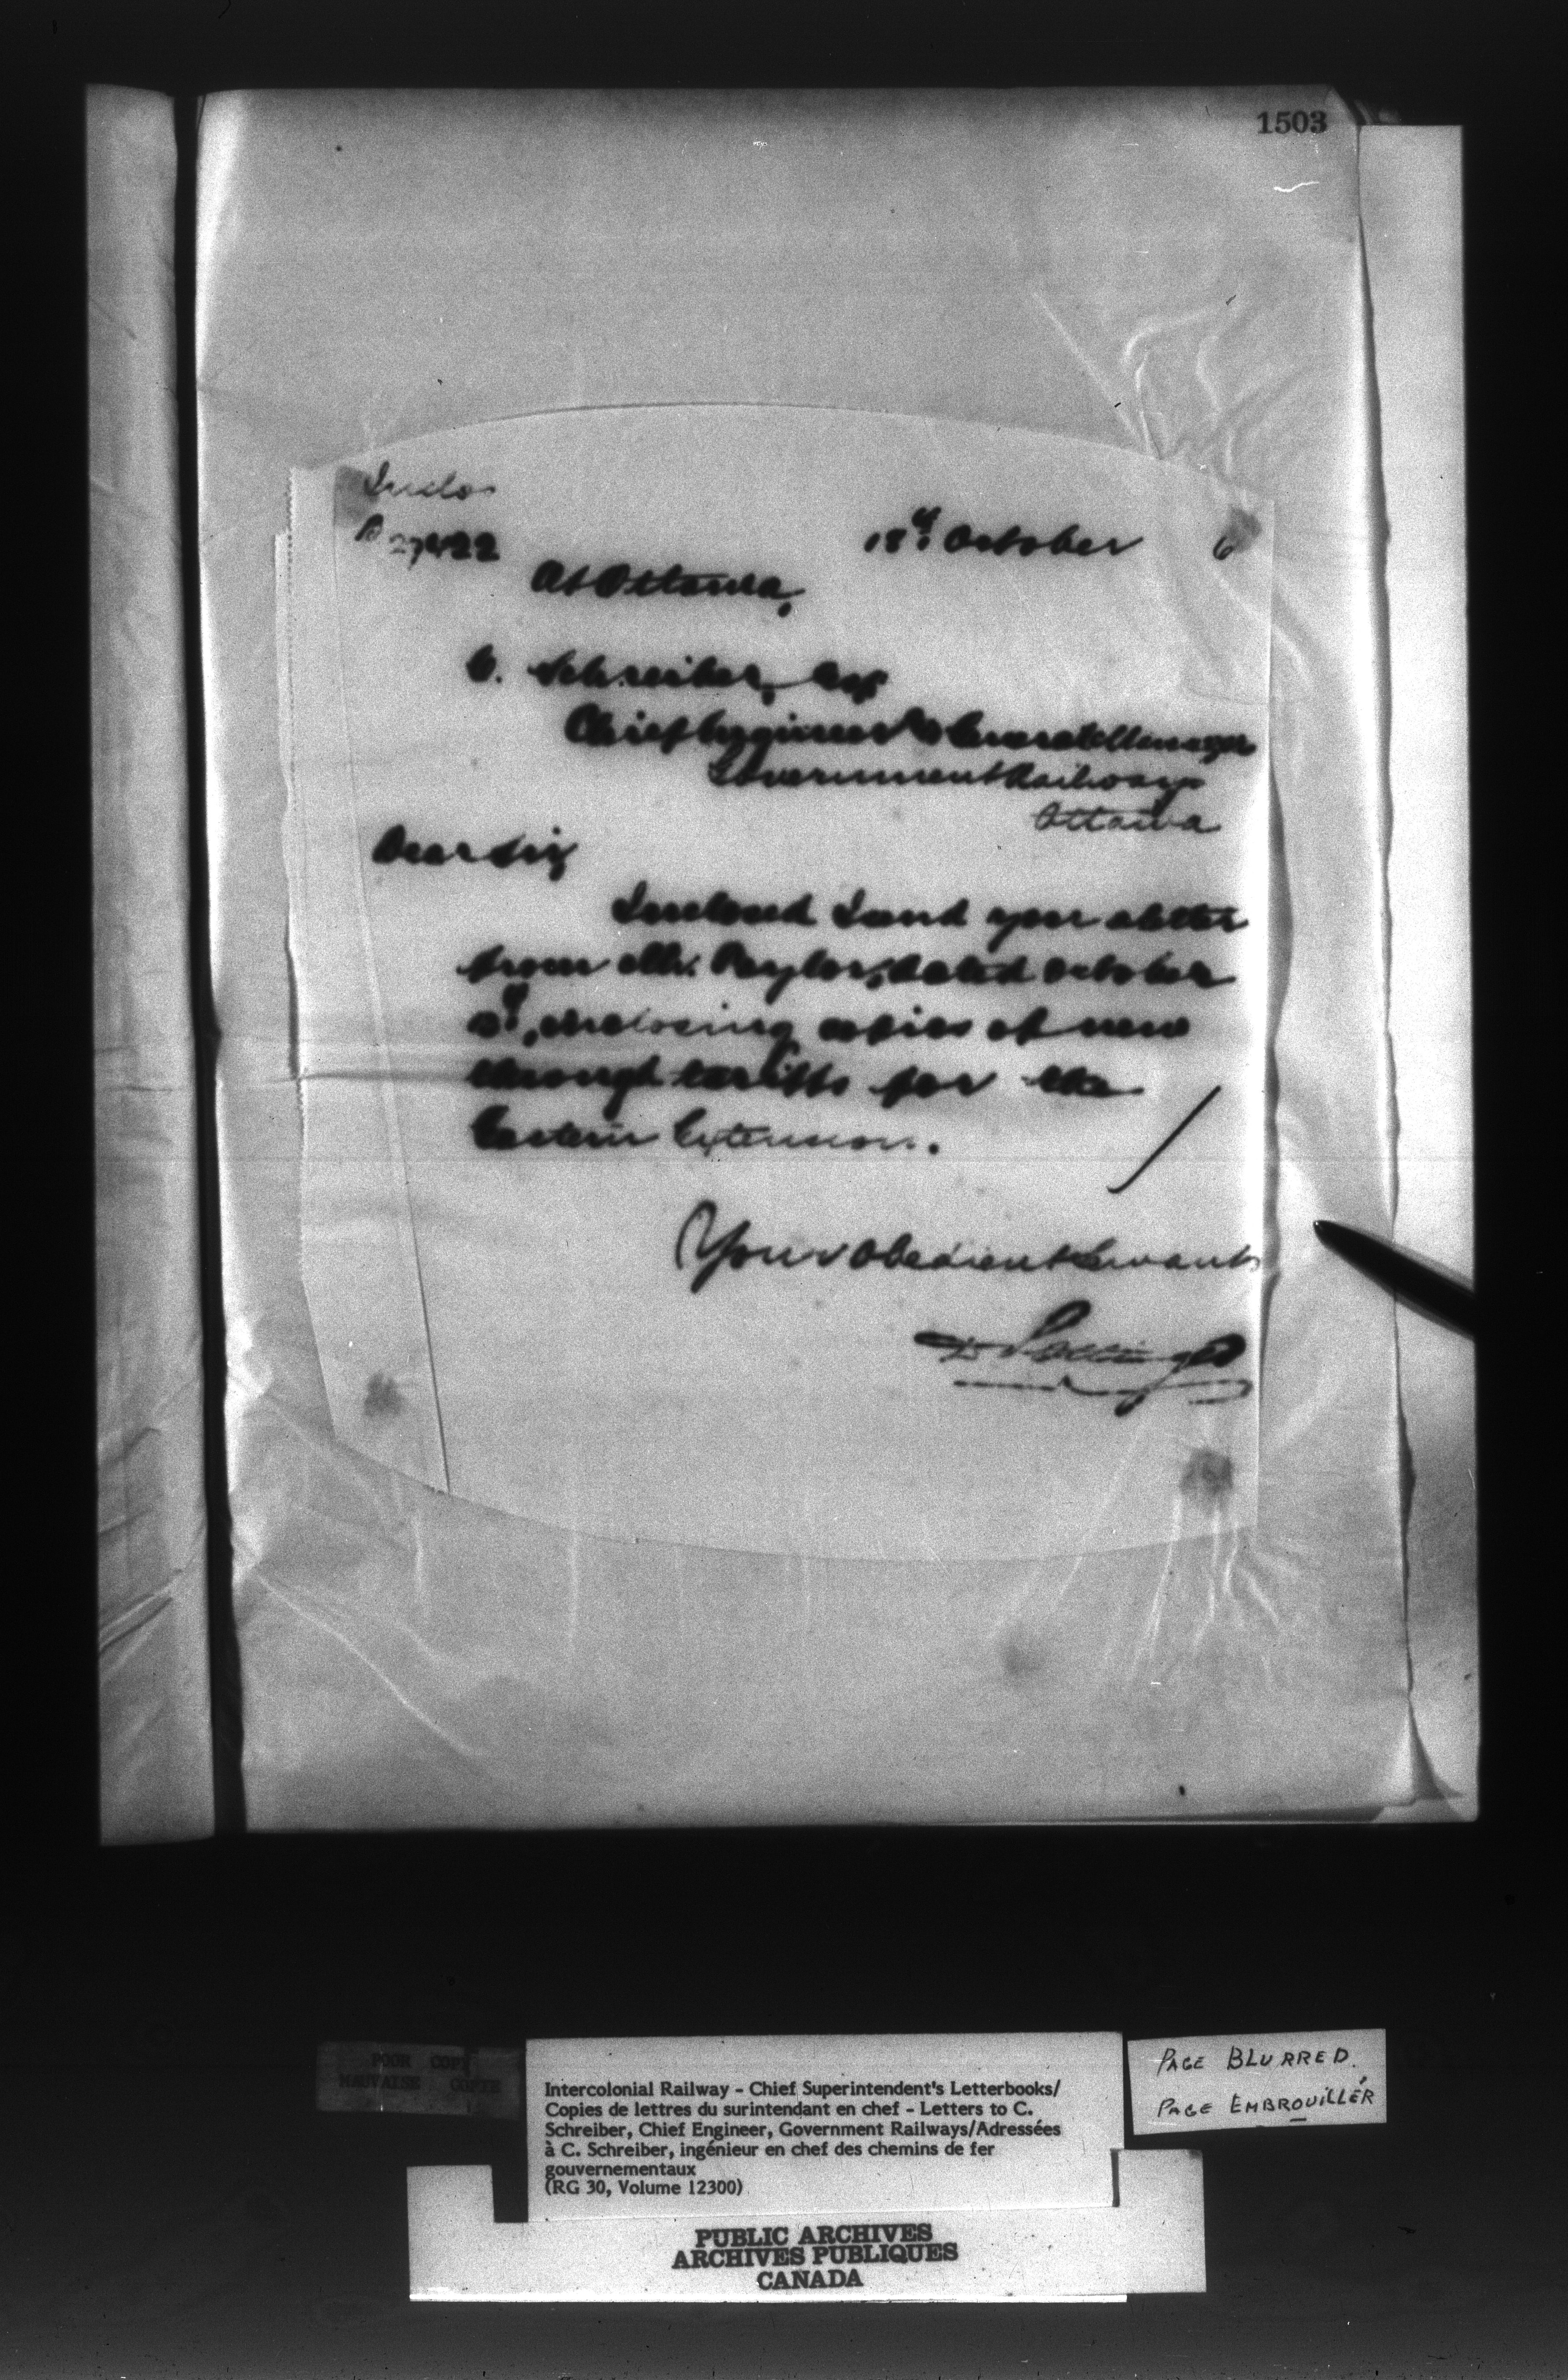 1503
Inclo
27422
18th October 6
At Ottawa,
C. Schreiber, Esq
Chief Engineer & General Manager
Government Railways
Ottawa
Dear Sir,
Inclosed I send you a letter
from Mr. Taylor, dated October
enclosing copies of new
through tariffs for the
Eastern Extension.
Your Obedient Servant
D. Pottinger
POOR COPY
MAUVAISE COPIE
Intercolonial Railway - Chief Superintendent's Letterbooks/
Copies de lettres du surintendant en chef - Letters to C.
Schreiber, Chief Engineer, Government Railways/Adressées
à C. Schreiber, ingénieur en chef des chemins de fer
gouvernementaux
(RG 30, Volume 12300)
PAGE BLURRED.
PAGE EMBROUILLÉR
PUBLIC ARCHIVES
ARCHIVES PUBLIQUES
CANADA